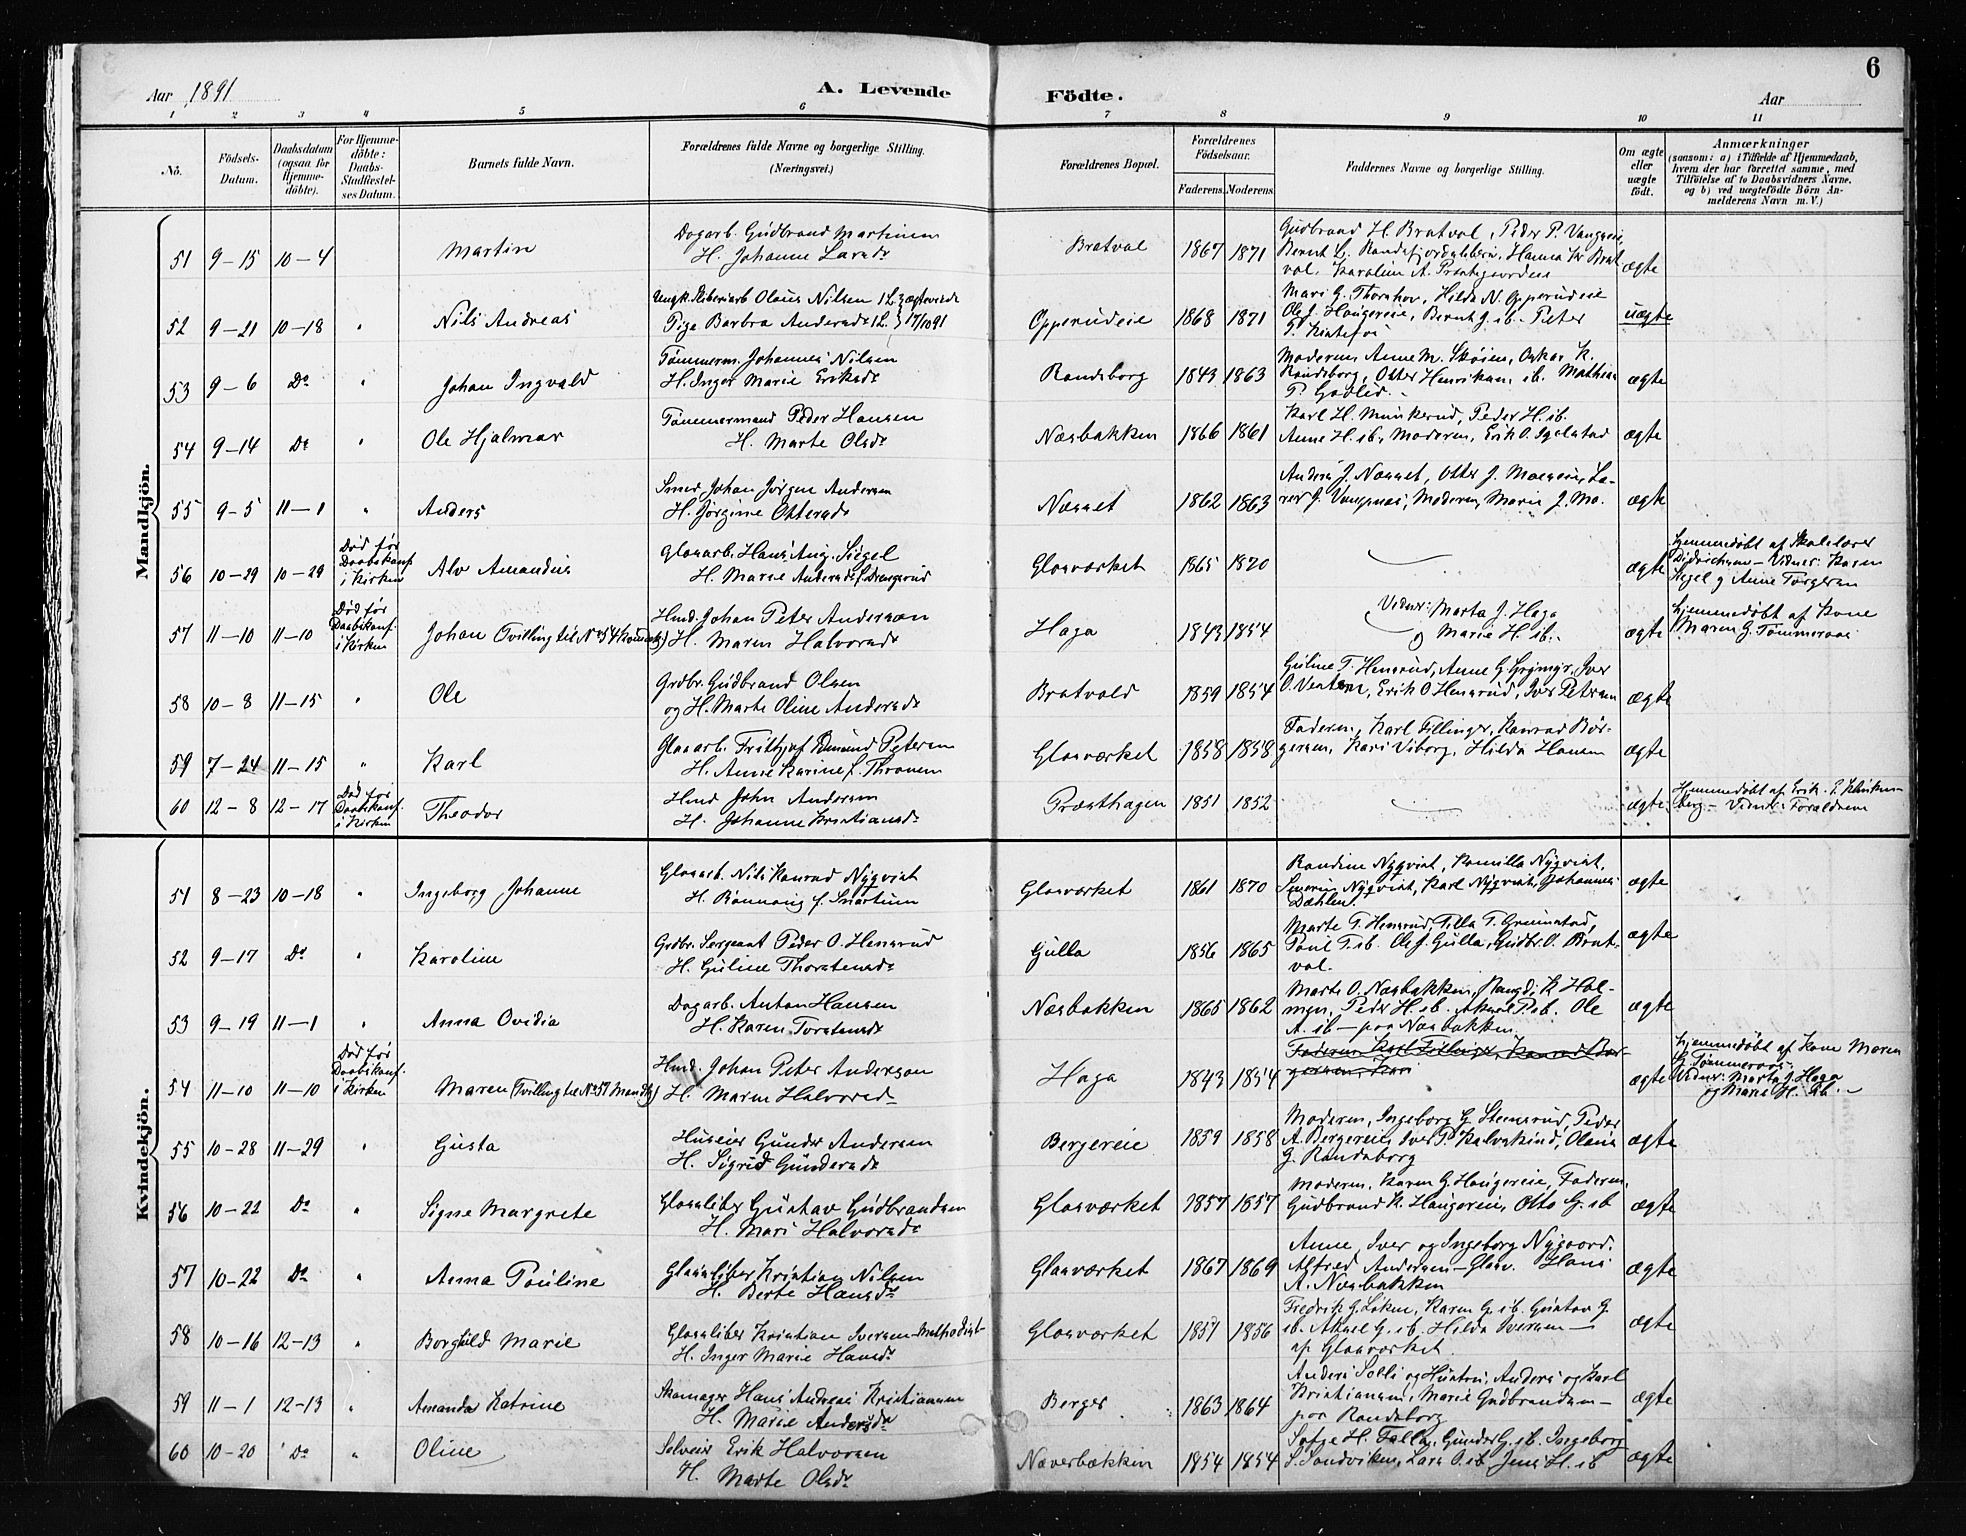 Aar 1891
A. Levende
Födte.
6
Aar
1 2 3 4 5 6 7 8 9 10 11
No.
Födsels-Datum.
Daabsdatum (ogsaa for Hjemme-döbte).
For Hjemme-döbte: Daabs-Stadfæstel-ses Datum.
Barnets fulde Navn.
Forældrenes fulde Navne og borgerlige Stilling. (Næringsvei.)
Forældrenes Bopæl.
Forældrenes Födselsaar.
Faderens. Moderens.
Faddernes Navne og borgerlige Stilling.
Om ægte eller uægte födt.
Anmærkninger
(saasom: a) i Tilfælde af Hjemmedaab, hvem der har forrettet samme, med Tilföielse af to Daabsvidners Navne, og b) ved uægtefödte Börn An-melderens Navn m. V.)
Mandkjön.
51 9-15 10-4 Martin
Dagarb. Gudbrand Martinsen
H. Johanne Larsdr
Bratval 1867 1871
Gudbrand H. Bratval, Peder P.
ægte
52 9-21 10-18 " Nils Andreas
Olaus Nilsen 1 L.
Pige Barbra Andersdr 1 L. 17/10 91
Opperudeie 1868 1871
Mari G. Thornhov, Hilda N. Opperudeie
Ole J. Haugereie, Bernt J. ib. Peter
uægte
53 9-6 Do " Johan Ingvald
Tømmerm. Johannes Nilsen
H. Inger Marie Eriksdr
Randsborg 1843 1863
Moderen, Anne M. Skøien, Oskar K.
Randsborg, Otter Henriksen, ib. Mathias
ægte
54 9-14 Do " Ole Hjalmar
Tømmermand Peder Hansen
H. Marte Olsdr
Næsbakken 1866 1861
Karl H. Munkerud, Peder H. ib.
Anne H. ib, Moderen, Erik O. Igelstad
ægte
55 9-5 11-1 " Anders
Smed Johan Jørgen Andersen
H. Jørgine Ottersdr
Næsset 1862 1863
Anders J. Næsset, Otter J.
Moderen, Marie J. Mo.
ægte
56 10-29 10-29 Død før Daabskonf. i Kirken Alv Amandus
Glasarb. Hans Aug. Siegel
H. Marie Andersdr f. Drengsrud
Glasværket 1865 1870
ægte
Hjemmedøbt af Skolelærer
Didrichsen - Vidner: Karen
Siegel og Anne Torgersen
57 11-10 11-10 Død før Daabskonf. i Kirken Johan (Tvilling til No 54 Kvindekj)
Hmd. Johan Peter Anderson
H. Maren Halvorsdr
Haga 1843 1854
Vidner: Marta J. Haga
og Marie H. ib.
ægte
Hjemmedøbt af Kone
Maren G. Tømmeraas
58 10-8 11-15 " Ole
Grdbr. Gudbrand Olsen
og H. Marte Oline Andersdr
Bratvold 1859 1854
Guline T. Hensrud, Anne G.
Erik O Hensrud, Iver Petersen
ægte
59 7-24 11-15 " Karl
Glasarb. Frithjof Edmund Petersen
H. Anne Karine f. Thronsen
Glasværket 1858 1858
Faderen, Karl Fillinger, Konrad Bør-
gersen, Kari Viborg, Hilda Hansen
ægte
60 12-8 12-17 Død før Daabskonf. i Kirken Theodor
Hmd John Andersen
H. Johanne Kristiansdr
Præsthagen 1851 1852
ægte
Hjemmedøbt af Erik
Vidner: Forældrene
Kvindekjön.
51 8-23 10-18 " Ingeborg Johanne
Glasarb. Nils Konrad Nyqvist
H. Rønnaug f. Snartum
Glasværket 1861 1870
Randine Nyqvist, Kamilla Nyqvist,
Severin Nyqvist, Karl Nyqvist, Johannes
Dæhlen
ægte
52 9-17 Do " Karoline
Grdbr. Sergeant Peder O. Hensrud
H. Guline Thorstensdr
Gulla 1856 1865
Marte T. Hensrud, Tilla T. Grimstad,
Paul T. ib. Ole J. Gulla, Gudbr. O. Brat-
val.
ægte
53 9-19 11-1 " Anna Ovidia
Dagarb. Anton Hansen
H. Karen Torstensdr
Næsbakken 1865 1862
Marte O. Næsbakken, K Hol-
men, Peder H. ib. Aksel P. ib. Ole
A. ib - paa Næsbakken.
ægte
54 11-10 11-10 Død før Daabskonf. i Kirken Maren (Tvilling til No 57 Mandkj)
Hmd. Johan Peter Anderson
H. Maren Halvorsd-
Haga 1843 1854
Faderen Karl Fillinger, Konrad Bør-
gersen, Kari
ægte
Hjemmedøbt af Kone Maren
G. Tømmeraas
Vidner: Marta J. Haga
og Marie H. ib. -
55 10-28 11-29 " Gusta
Huseier Gunder Andersen
H. Sigrid Gundersdr
Bergereie 1859 1858
Moderen, Ingeborg G. Stensrud, Peder
A. Bergereie, Iver P. Kalvskind, Olaus
G. Randsborg
ægte
56 10-22 Do " Signe Margrete
Glassliber Gustav Gudbrandsen
H. Mari Halvorsdr
Glasværket 1857 1857
Moderen, Karen G. Haugereie, Faderen,
Gudbrand K. Haugereie, Otto G. ib
ægte
57 10-22 Do " Anna Pauline
Glassliber Kristian Nilsen
H. Berte Hansdr
Glasværket 1867 1869
Anne, Iver og Ingeborg Nygaard.
Alfred Andersen - Glasv. Hans
A. Næsbakken
ægte
58 10-16 12-13 " Borghild Marie
Glassliber Kristian Iversen - Methodist
H. Inger Marie Hansdr
Glasværket 1851 1856
Fredrik G. Løken, Karen G. ib. Gustav G.
ib. Aksel G. ib. Hilda Iversen -
af Glasværket.
ægte
59 11-1 12-13 " Amanda Katrine
Skomager Hans Andreas Kristiansen
H. Marie Andersdr
Berger 1863 1864
Anders Solli og Hustru, Anders og Karl
Kristiansen, Marie Gudbrandsen -
paa Randsborg
ægte
60 10-20 Do " Oline
Selveier Erik Halvorsen
H. Marte Olsdr
Næverbækken 1854 1854
Sofie H. Falla, Gunder G. ib. Ingeborg
S. Sandviken, Lars O. ib Jens H. ib
ægte